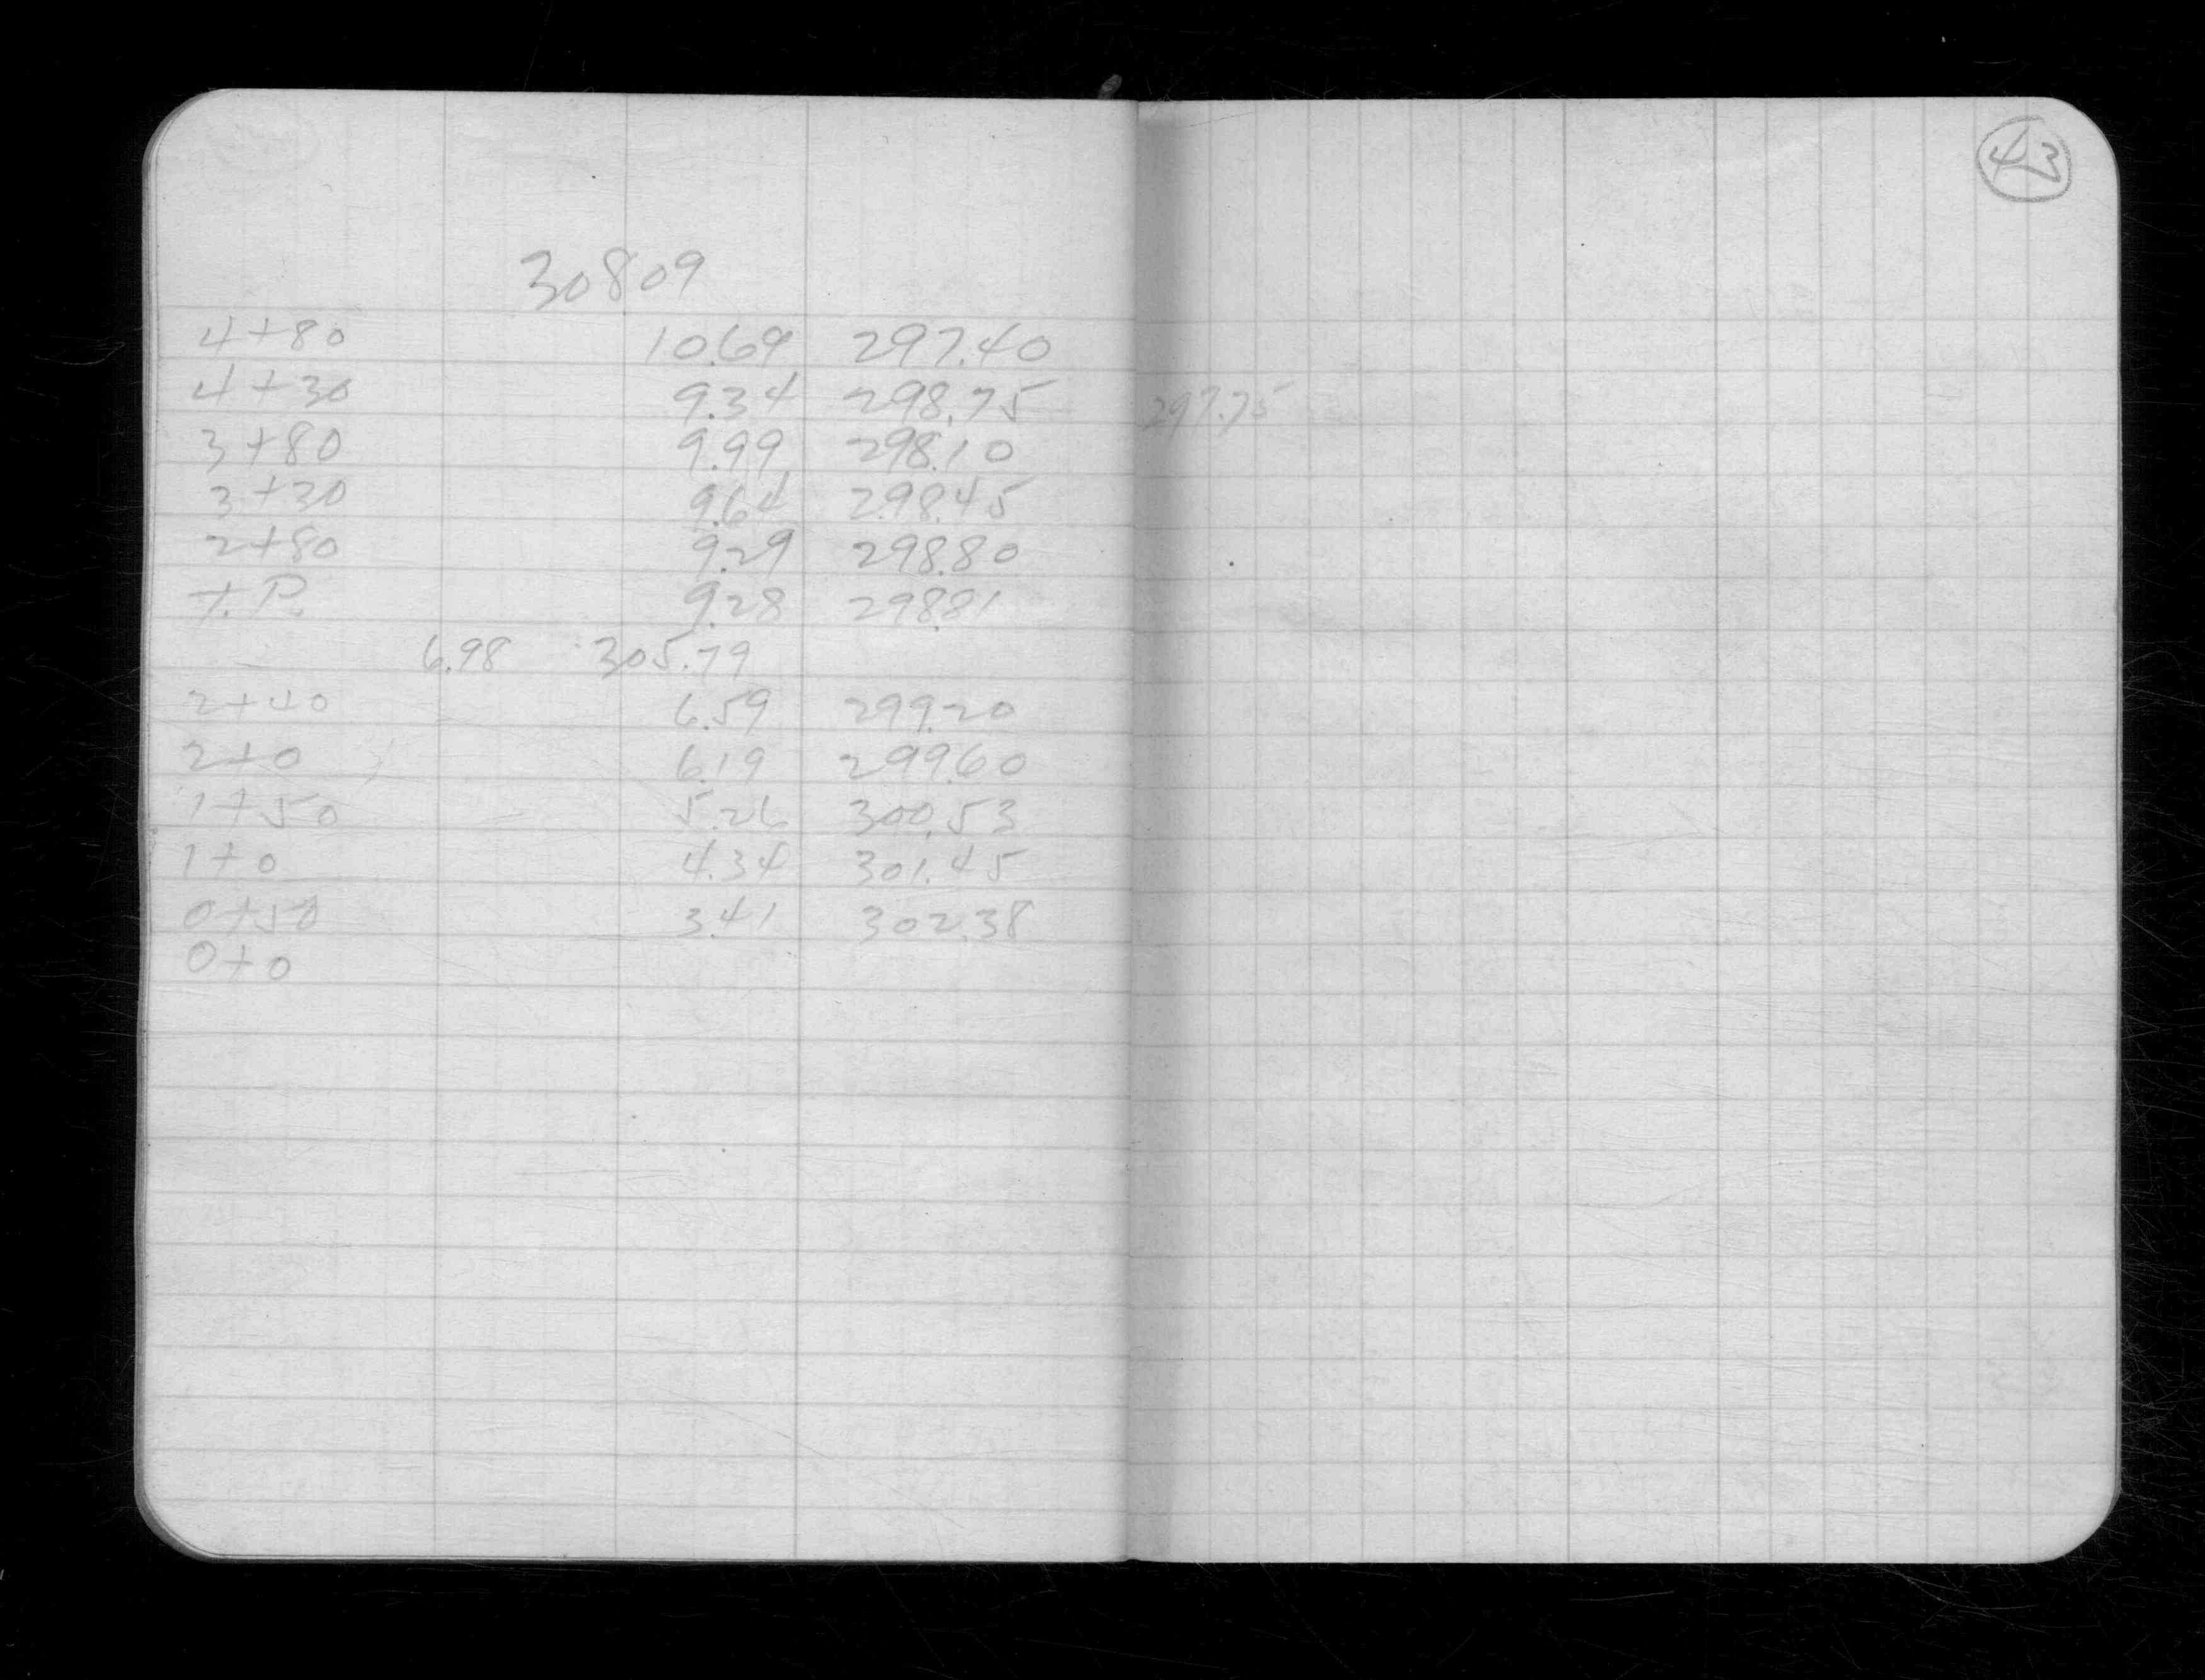 43
30809
4+80 10.69 297.40
4+30 9.34 298.75 297.75
3+80 9.99 298.10
3+30 9.64 298.45
2+80 9.29 298.80
T.P. 9.28 298.81
6.98 305.79
2+40 6.59 299.20
2+0 6.19 299.60
1+50 5.26 300.53
1+0 4.34 301.45
0+50 3.41 302.38
0+0